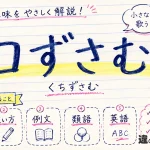 味をやさしく解説!
小さな
歌う
口ずさむ
くちずさむ
こと
い方
2
例文
3
類語
4
英語
ABC
違